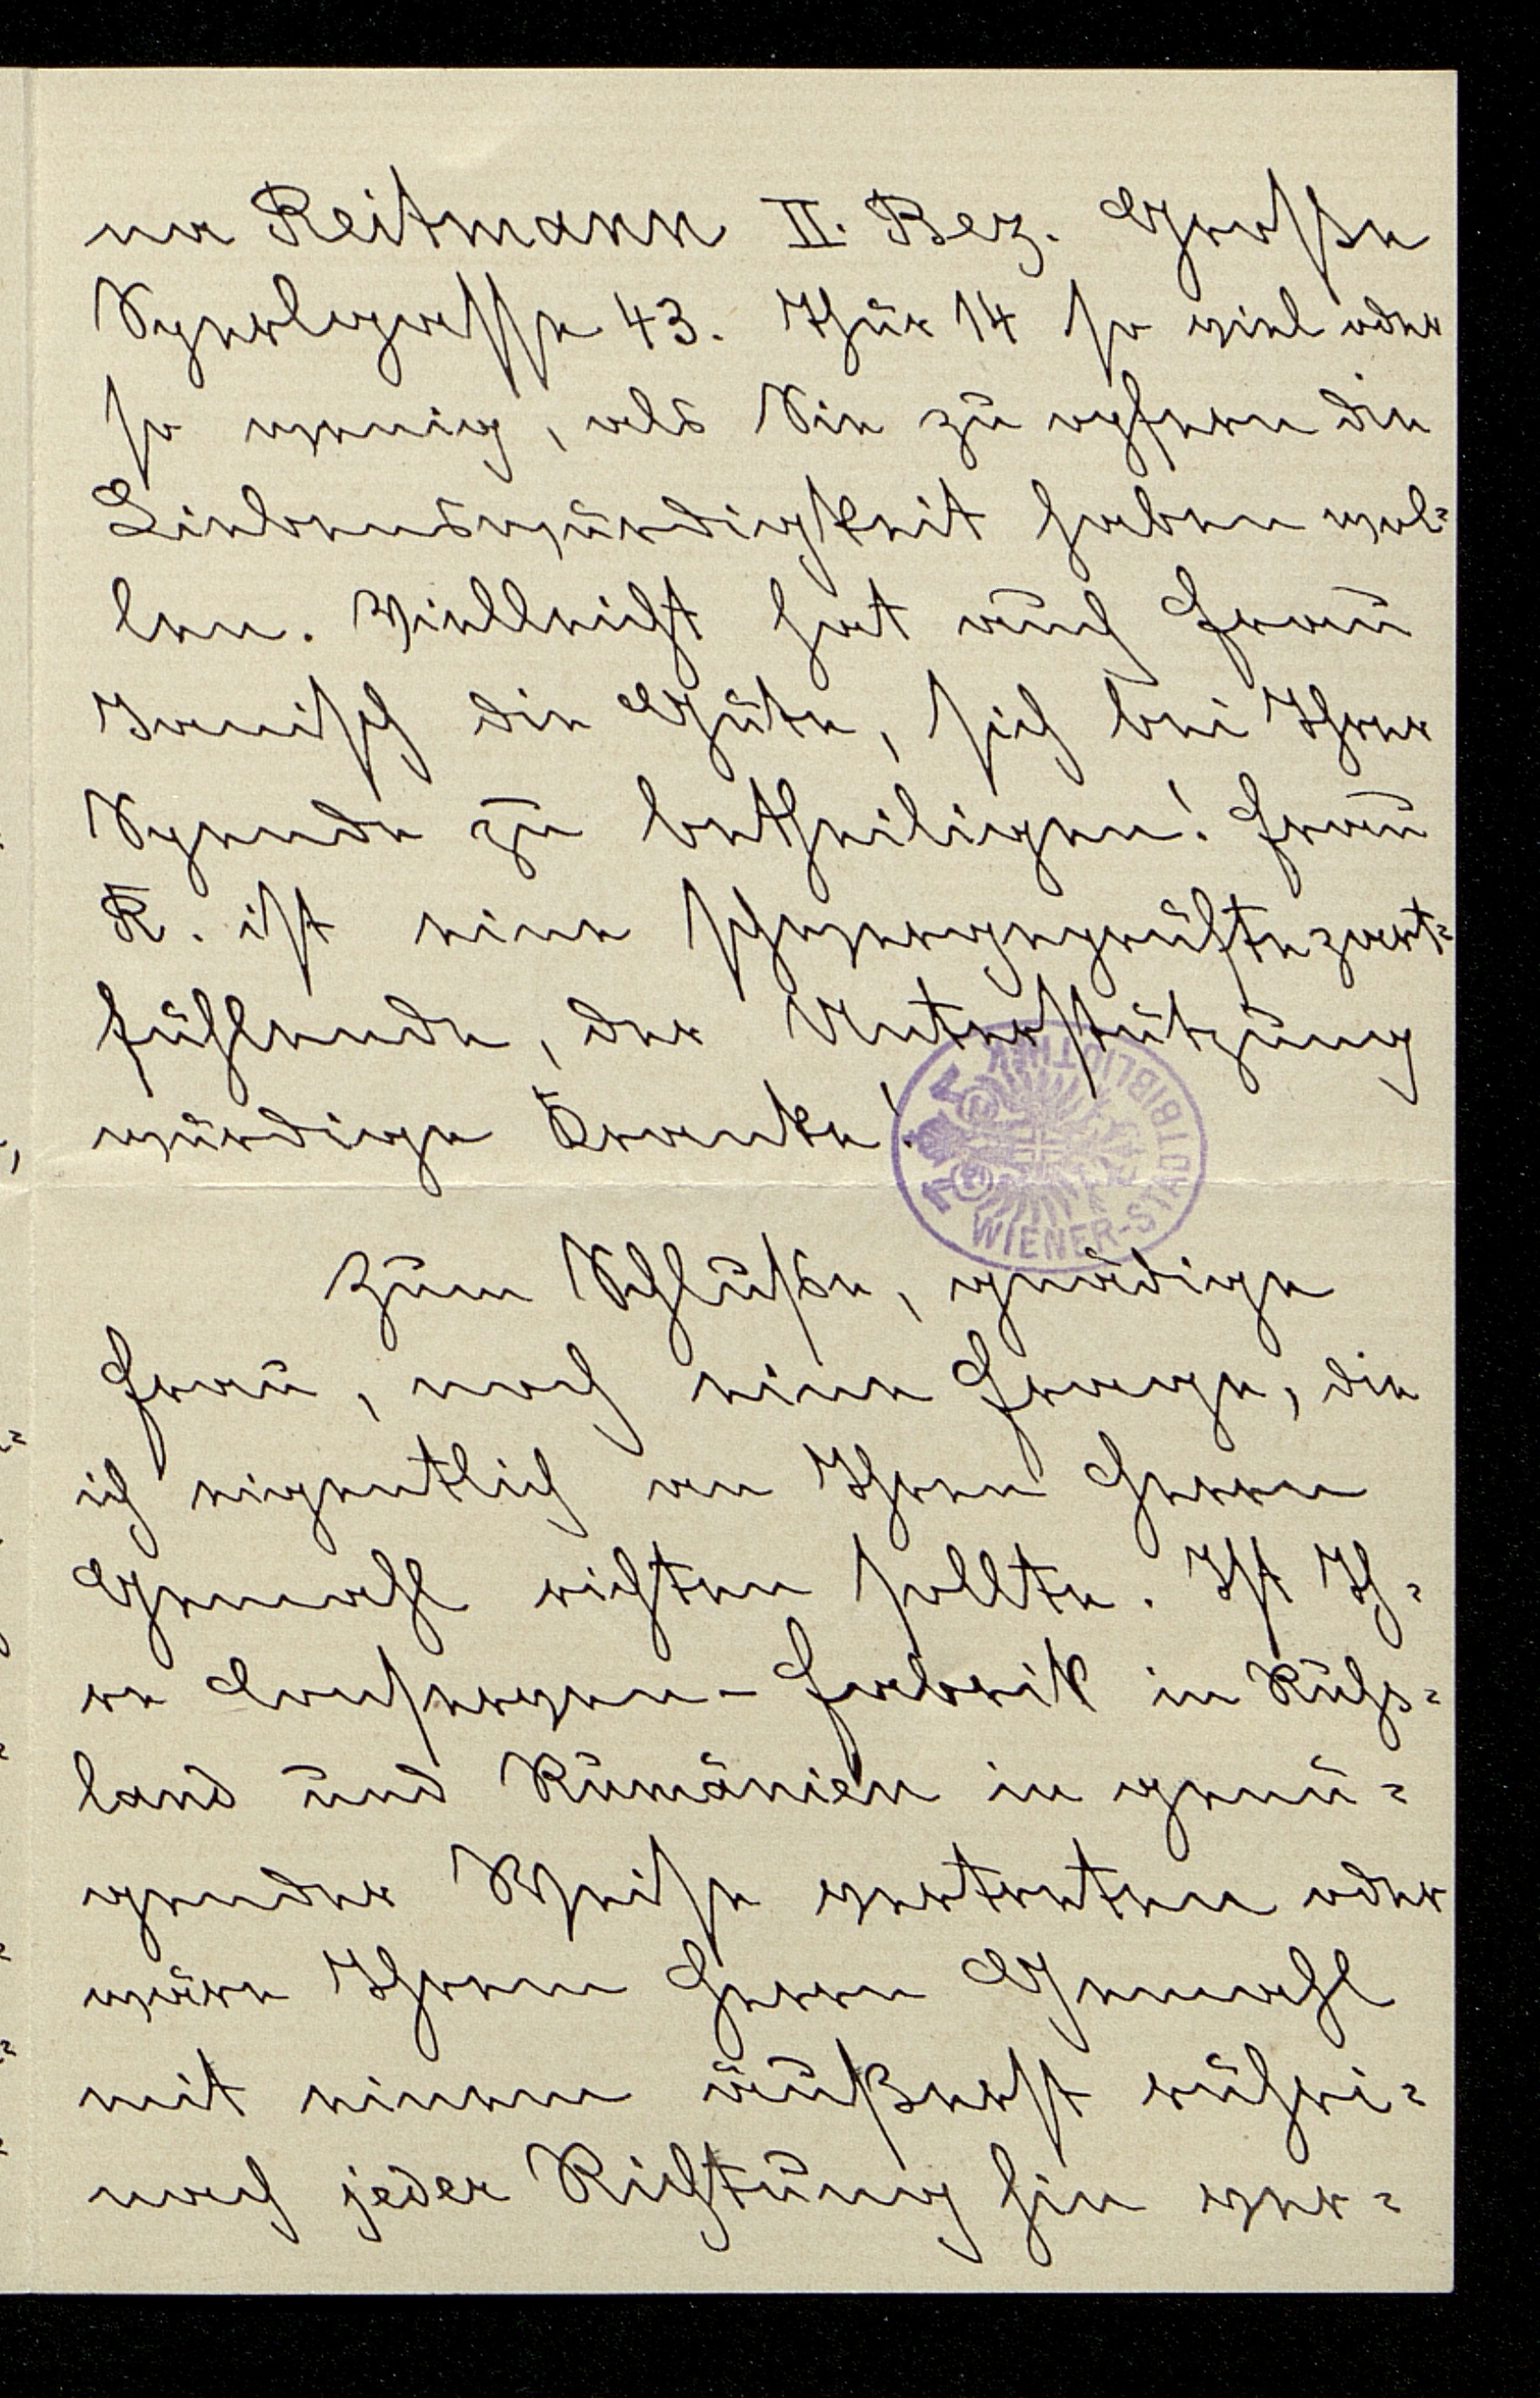 na Reitmann II. Bez. Große
Sperlgasse 43. Thür 14 so viel oder
so wenig, als Sie zu opfern die
Liebenswürdigkeit haben wol-
len. Vielleicht hat auch Frau
Janisch die Güte, sich bei Ihrer
Spende zu betheiligen! Frau
R. ist eine schwergeprüfte zart-
fühlende, der Unterstützung
würdige Kranke!
Zum Schluße, gnädige
Frau, noch eine Frage, die
ich eigentlich an Ihren Herrn
Gemahl richten sollte. Ist Ih-
re Conserven-Fabrik in Ruß-
land und Rumänien in genü-
gender Weise vertreten oder
wäre Ihrem Herrn Gemahl
mit einem äußerst rühri-
nach jeder Richtung hin ver-
WIENER-STADTBIBLIOTHEK